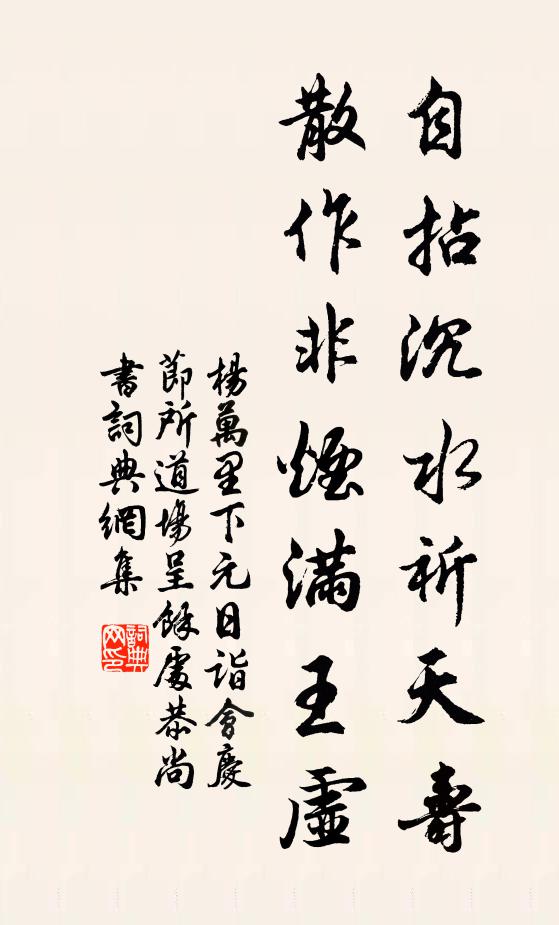 自拈沉水祈天壽
散作非煙滿王虛
楊萬里下元日詣會慶
節所道場呈餘處恭尚
書詞典網集
詞典
网印